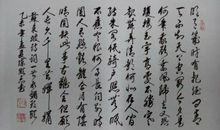 明月幾時有把酒問青
天不知天上宮闕今夕是
何年我欲乘風歸去又恐
瓊樓玉宇高處不勝寒
起舞弄清影何似在人間
轉朱閣低綺戶照無眠
不應有恨何事長向別時
圓人有悲歡離合月有陰
晴圓缺此事古難全但願
人長久千里共嬋娟